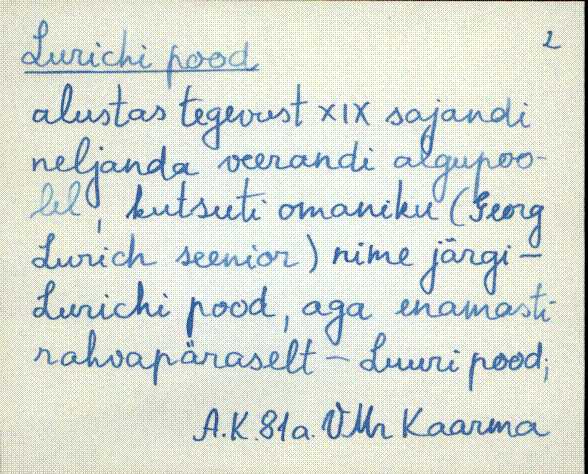 2
Lurichi pood
alustas tegevust XIX sajandi
neljanda veerandi algupoo-
lel, kutsuti omaniku (Georg
Lurich seenior) nime järgi -
Lurichi pood, aga enamasti
rahvapäraselt - Luuri pood;
A.K. 81a. VMr Kaarma